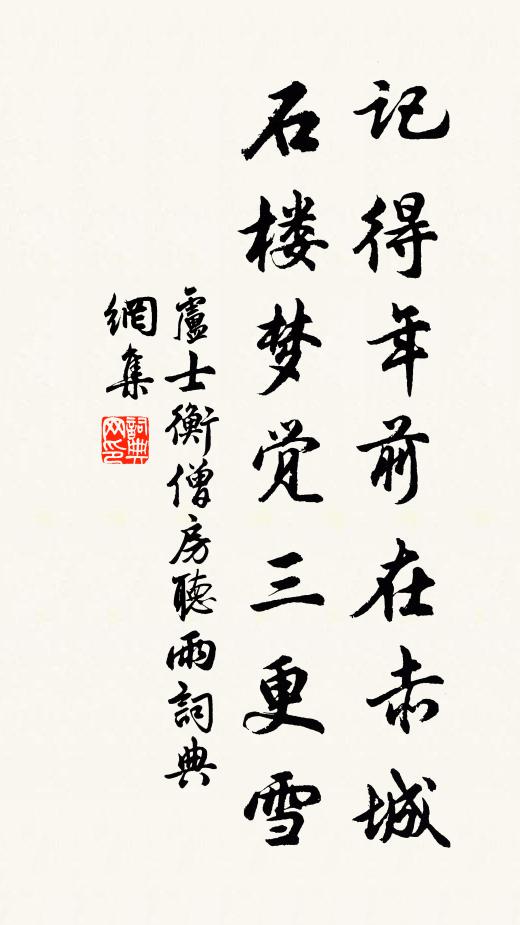 记得年前在赤城
石楼梦觉三更雪
盧士衡僧房聽雨詞典
網集
詞典
网印